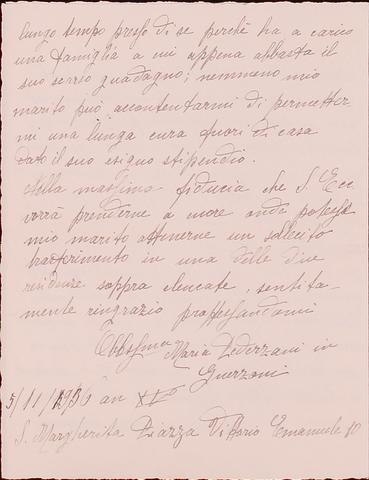 lungo tempo presso di se perchè ha a carico
una famiglia a cui appena abbasta il
suo serrio guadagno; nemmeno mio
marito può accontentarmi di permetter-
mi una lunga cura fuori di casa
dato il suo esiguo stipendio.
Nella massima fiducia che S. Ecc
vorrà prenderne a more onde potesse
mio marito ottenerne un sollecito
trasferimento in una delle due
residenze soppra elencate, sentita-
mente ringrazio professandomi
Obb.sma Maria Pederzani in
Guerzoni
5/11/1936 an XV°
S. Margherita Piazza Vittorio Emanuele 10